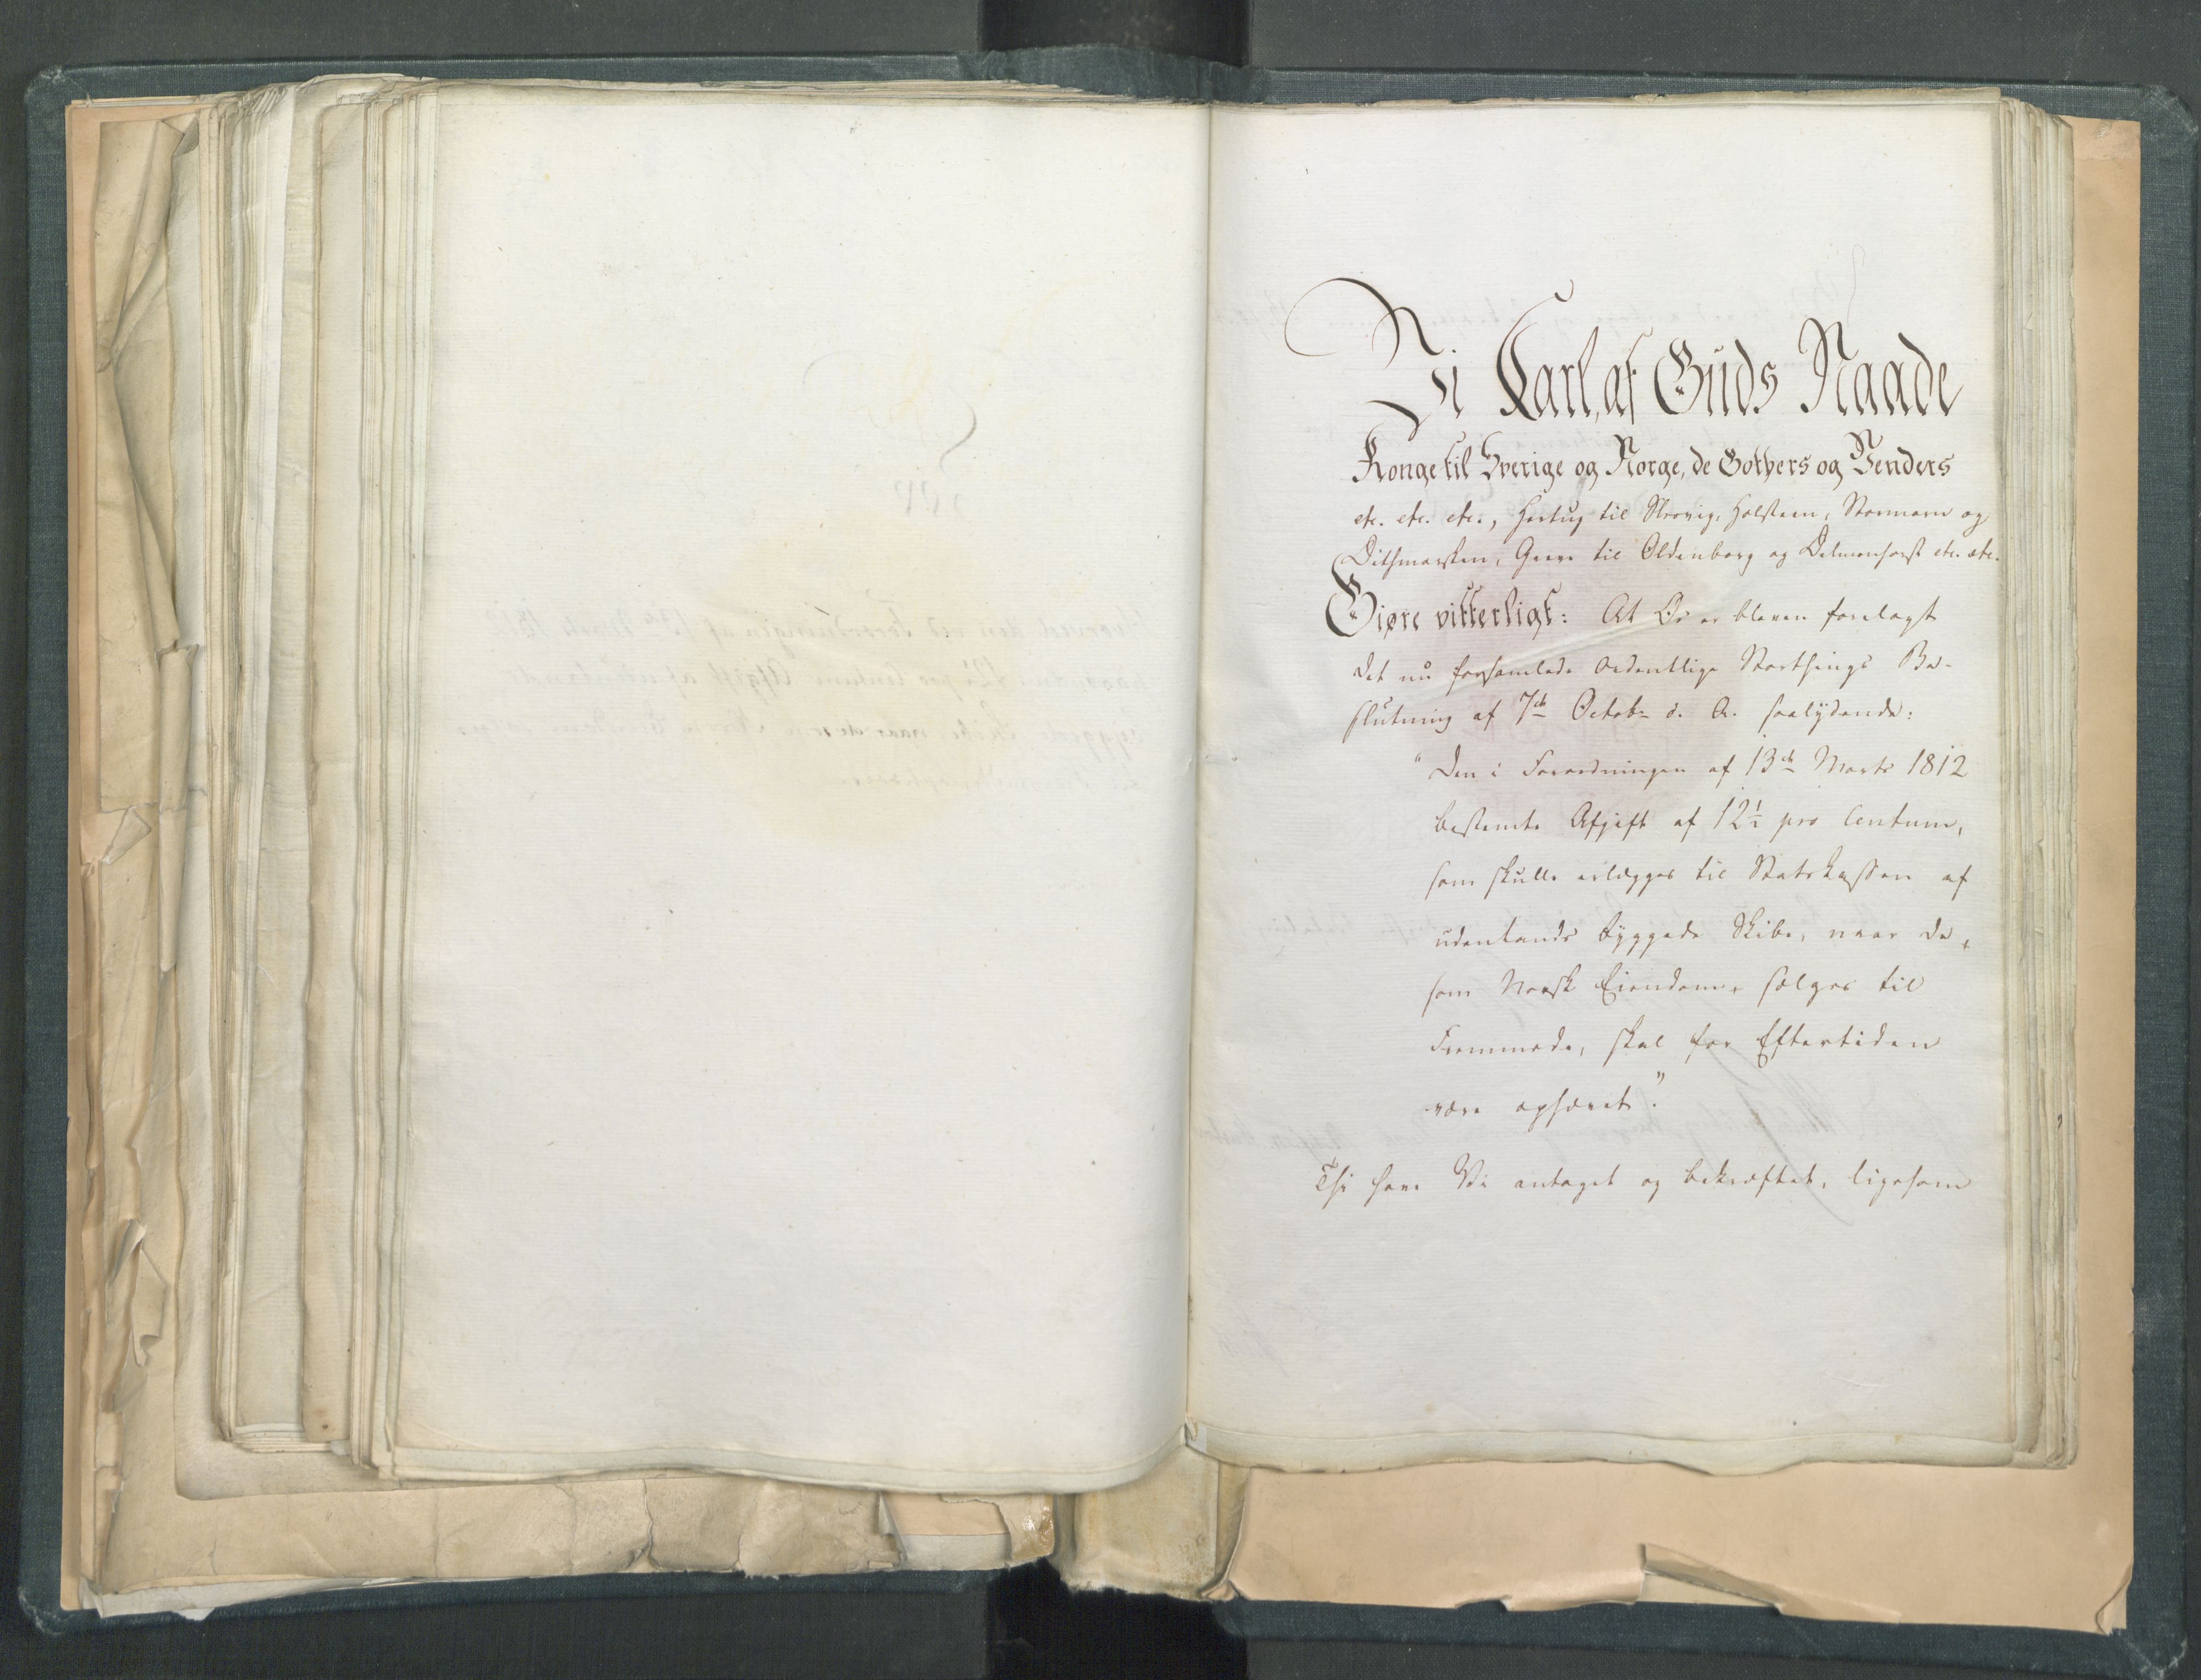 Vi Carl, af Guds Naade
Konge til Sverige og Norge, de Gothers og Venders
etc. etc. etc., Hertug til Slesvig, Holsteen, Stormarn og
Dithmarsken, Greve til Oldenborg og Delmenhorst etc. etc.
Giøre vitterligt: At Os er bleven forelagt
det nu forsamlede ordentlige Storthings Be-
slutning af 7de Octobr d. A. saalydende:
"Den i Forordningen af 13de Marts 1812
bestemte Afgift af 12½ pro Centum,
som skulle erlægges til Statskassen af
udenlands byggede Skibe, naar de,
som Norsk Eiendom, sælges til
Fremmede, skal for Eftertiden
være ophævet."
Thi have Vi antaget og bekræftet, ligesom